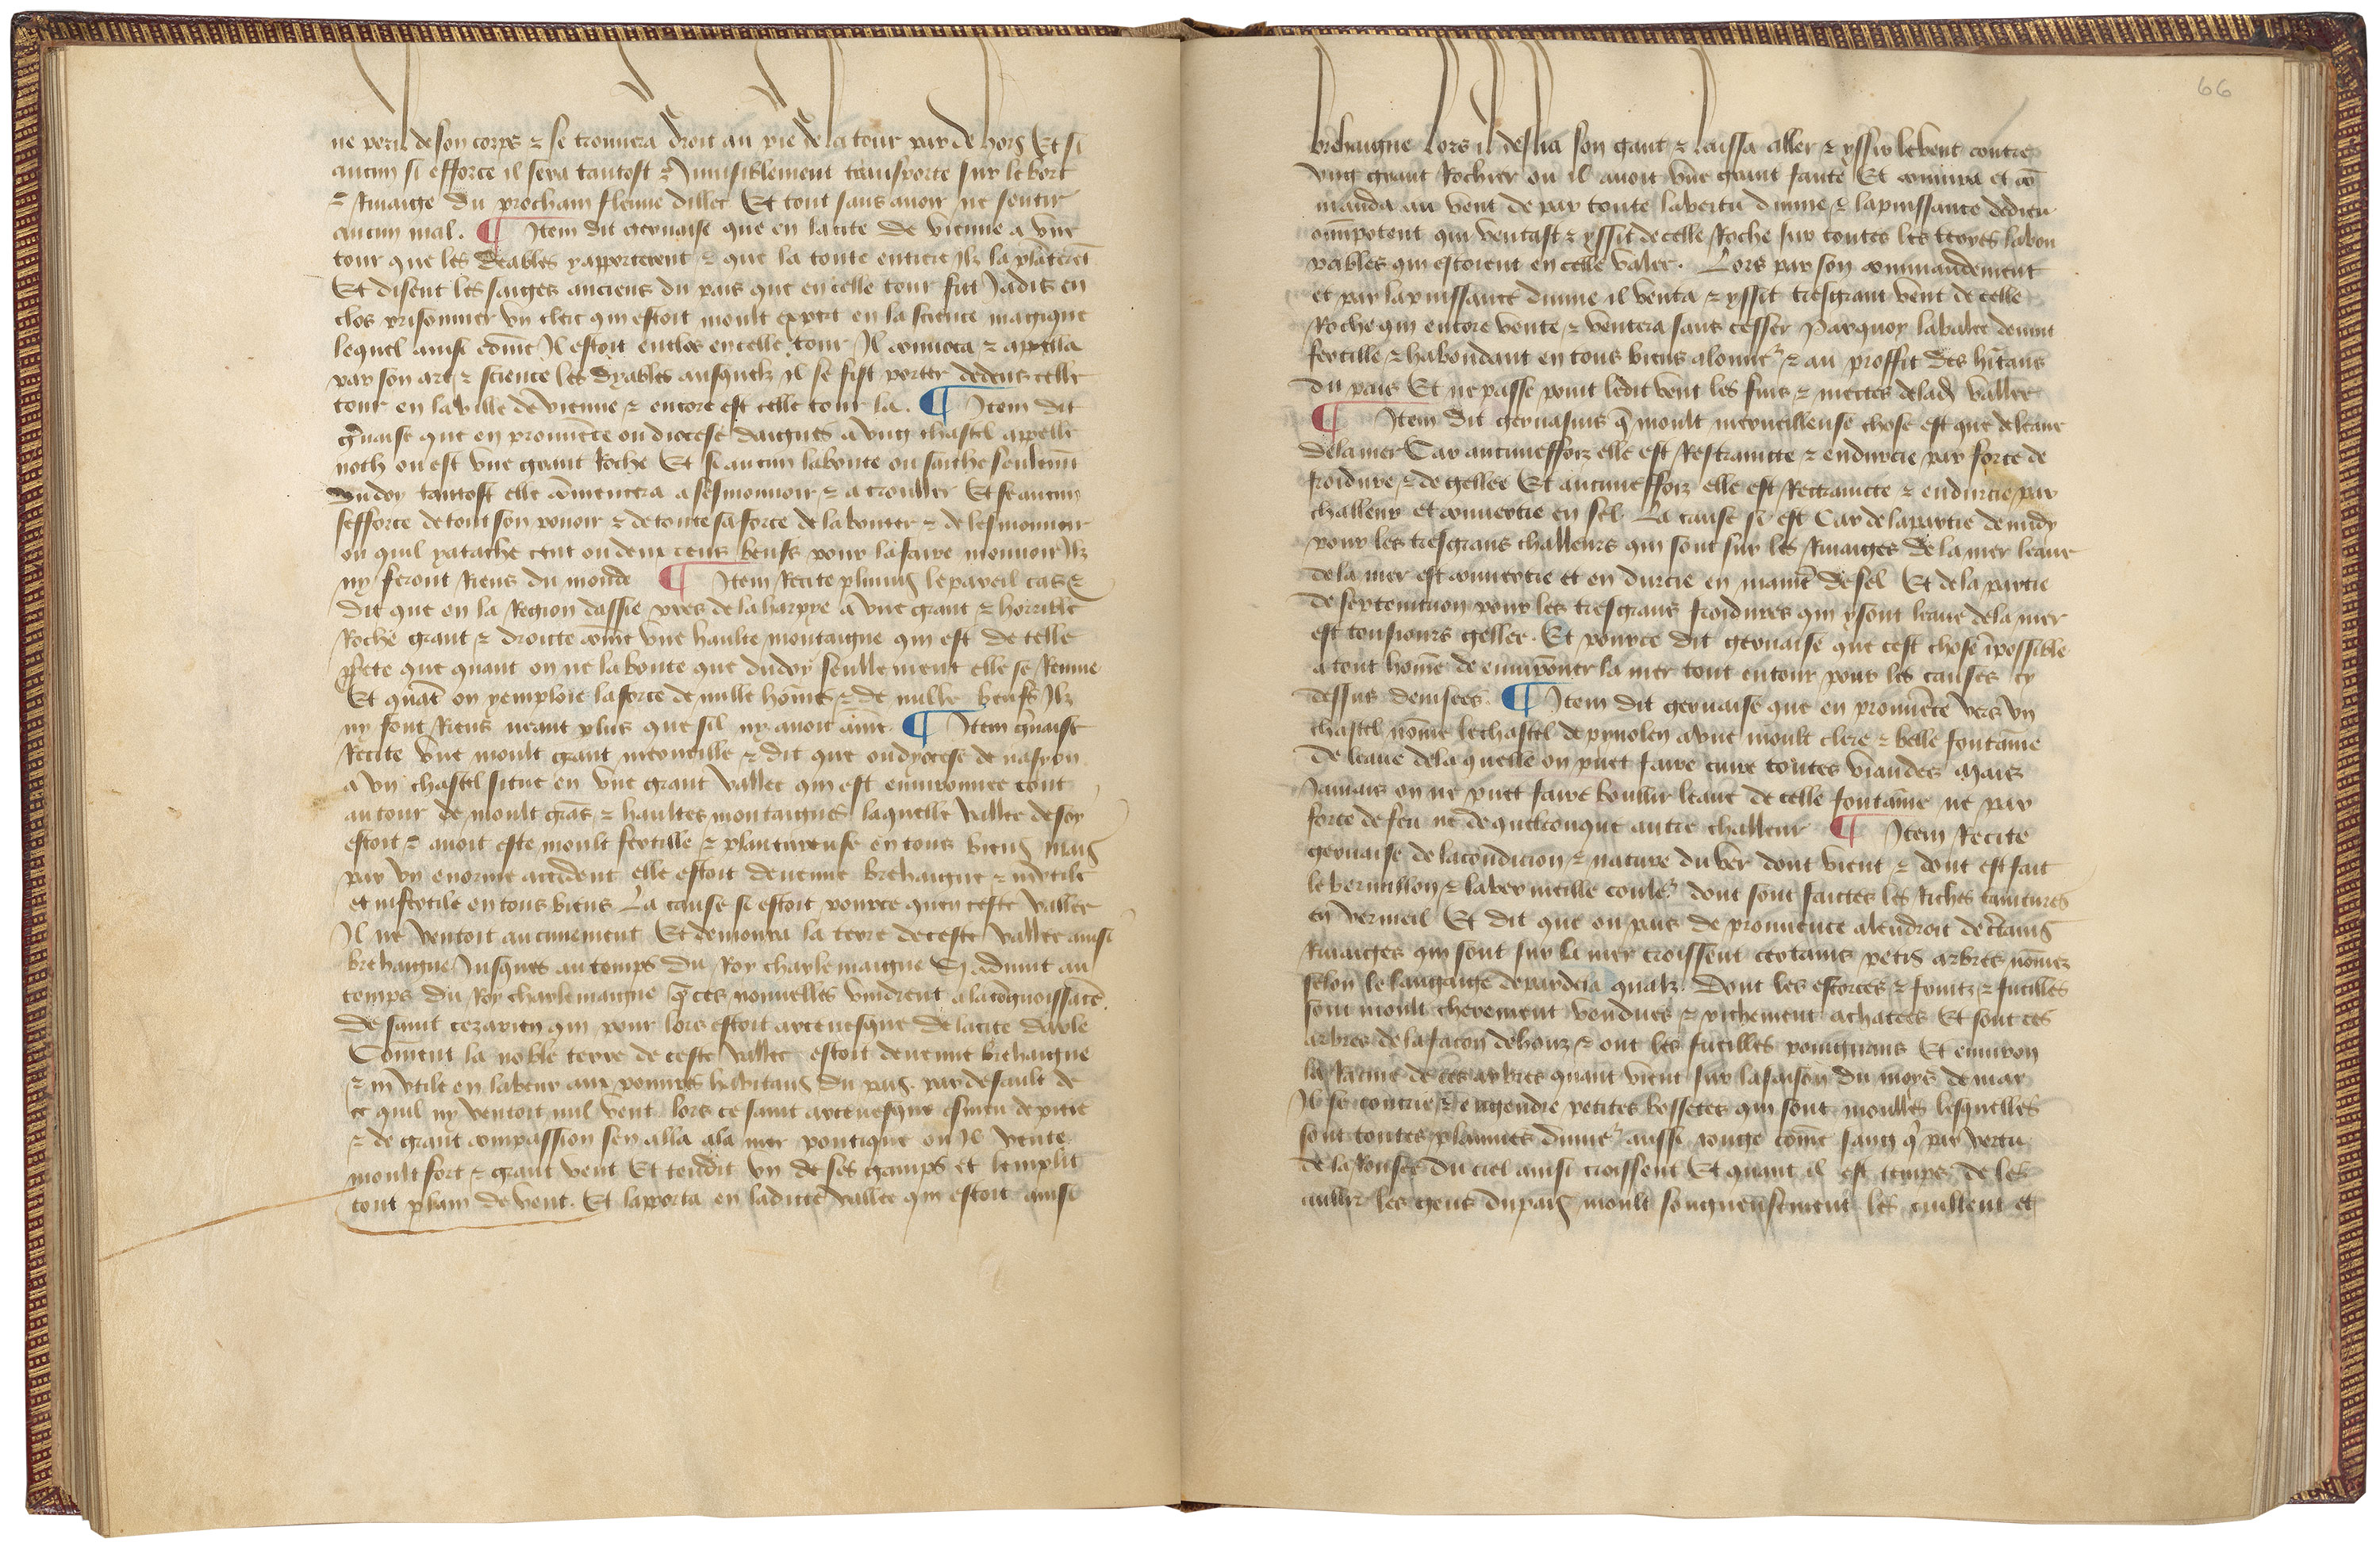 ne peril de son corps ⁊ se trouuera droit au pie de la tour par de hors Et si
aucun si efforce il sera tantost ⁊ Inuisiblement transporte sur le bort
⁊ Riuaige du prochain fleuue diller Et tout sans auoir ne sentir
aucun mal. ¶ Item dit geruaise que en la cite de vienne a vne
tour que les deables y apporterent ⁊ que la toute entiere Ilz la planterēt
Et disent les saiges anciens du pais que en icelle tour fut Jadis en
clos prisonnier vn clerc qui estoit moult expert en la science magique
lequel ainsi cōme Il estoit enclos en celle tour Il conuoca ⁊ appella
par son art ⁊ science les dyables ausquelz il se fist porter dedens celle
tour en la ville de vienne ⁊ encore est celle tour la. ¶ Item dit
gūaise que en prouuēce ou diocese daigues a vng chastel appelle
noth ou est vne grant Roche Et se aucun la boute ou saiche seulemēt
Du doy tantost elle cōmencera a sesmouuoir ⁊ a crouller Et se aucun
sefforce de tout son pouoir ⁊ de toute sa force de la bouter ⁊ de lesmouuoir
ou quil y atache cent ou deux cens beufs pour la faire mouuoir Ilz
ny feront Riens du monde ¶ Item Recite plinius le pareil cas ⁊
dit que en la Region dassie pres de la harpye a vne grant ⁊ horrible
Roche grant ⁊ droicte cōme vne haulte montaigne qui est de telle
que quant on ne la boute que du doy seullement elle se Remue
Et quāt on y emploie la force de mille hōmes ⁊ de mille beufs Ilz
ny font Riens neant plus que sil ny auoit ame ¶ Item gūaise
Recite vne moult grant merueille ⁊ dit que ou dyocese de nasyon
a vn chastel situe en vne grant vallee qui est enuironnee tout
autour de moult grās ⁊ haultes montaignes laquelle vallee de soy
estoit ⁊ auoit este moult fertille ⁊ plantureuse en tous biens mais
par vn enorme accident elle estoit deuenue brehaigne ⁊ inutile
et infertile en tous biens La cause si estoit pource quen ceste vallee
Il ne ventoit aucunement Et demoura la terre de ceste vallee ainsi
brehaigne Jusques au temps du Roy charlemaigne Si aduint au
temps du Roy charlemaigne q̄ ces nouuelles vindrent a la cōgnoissāce
de saint cezarien qui pour lors estoit arceuesque de la cite darle
Cōment la noble terre de ceste vallee estoit deuenue brehaigne
⁊ inutile en labeur aux poures habitans du pais par default de
ce quil ny ventoit nul vent lors ce saint arceuesque esmeu de pitie
⁊ de grant compassion sen alla a la mer pontique ou Il vente
moult fort ⁊ grant vent Et tendit vn de ses gamps et lemplit
tout plain de vent. Et lapporta en ladicte vallee qui estoit ainsi
66
brehaigne Lors il deslia son gant ⁊ laissa aller ⁊ yssir le vent contre
vng grant Rochier ou il auoit vne grant fante Et coniura et cō
manda au vent de par toute la vertu diuine ⁊ la puissance de dieu
omnipotent qui ventast ⁊ yssit de celle Roche sur toutes les terres labou
rables qui estoient en celle valee. Lors par son commandement
et par la puissance diuine il venta ⁊ yssit tresgrant vent de celle
Roche qui encore vente ⁊ ventera sans cesser Parquoy la valee deuint
fertille ⁊ habondant en tous biens a lonneur ⁊ au proffit des hītans
du pais Et ne passe point ledit vent les fins ⁊ mectes de lad vallee
¶ Item dit geruasius q̄ moult merueilleuse chose est que de leaue
de la mer Car aucuneffoiz elle est Restraincte ⁊ endurcie par force de
froidure ⁊ de gellee Et aucuneffoiz elle est Rectraincte ⁊ endurcie par
challeur et conuertie en sel La cause si est Car de la partie de midy
pour les tresgrans challeurs qui sont sur les Riuaiges de la mer leaue
de la mer est conuertie et en durcie en maniē de sel Et de la partie
de septentrion pour les tresgrans froidures qui y sont leaue de la mer
est tousiours gellee. Et pource dit geruaise que cest chose īpossible
a tout hōme de enuirōner la mer tout entour pour les causes cy
dessus deuisees. ¶ Item dit geruaise que en prouuēce vers vn
chastel nōme le chastel de pynolen a vne moult clere ⁊ belle fontaine
De leaue de laquelle on puet faire cuire toutes viandes Mais
Jamais on ne puet faire boullir leaue de celle fontaine ne par
force de feu ne de quelconque autre challeur ¶ Item Recite
geruaise de la condicion ⁊ nature du ver dont vient ⁊ dont est fait
le vermillon ⁊ la vermeille couleur dont sont faictes les Riches taintures
en vermeil Et dit que ou pais de prouuence a lendroit de c̄tains
Riuaiges qui sont sur la mer croissent certains petis arbres nōmez
selon le langaige de par dela qualz. Dont les escorces ⁊ fruitz ⁊ fueilles
sont moult cherement vendues ⁊ richement achatees Et sont ces
arbres de la facon de houz ⁊ ont les fueilles poingnans Et enuiron
la Racine de ces arbres quant vient sur la saison du moys de mar
Il se concrie ⁊ engendre petites bossetes qui sont moulles lesquelles
sont toutes plaines dumeur aussi rouge cōme sang q̄ par vertu
de la Rousee du ciel ainsi croissent Et quant il est temps de les
cullir les gens du pais moult songneusement les cuillent et